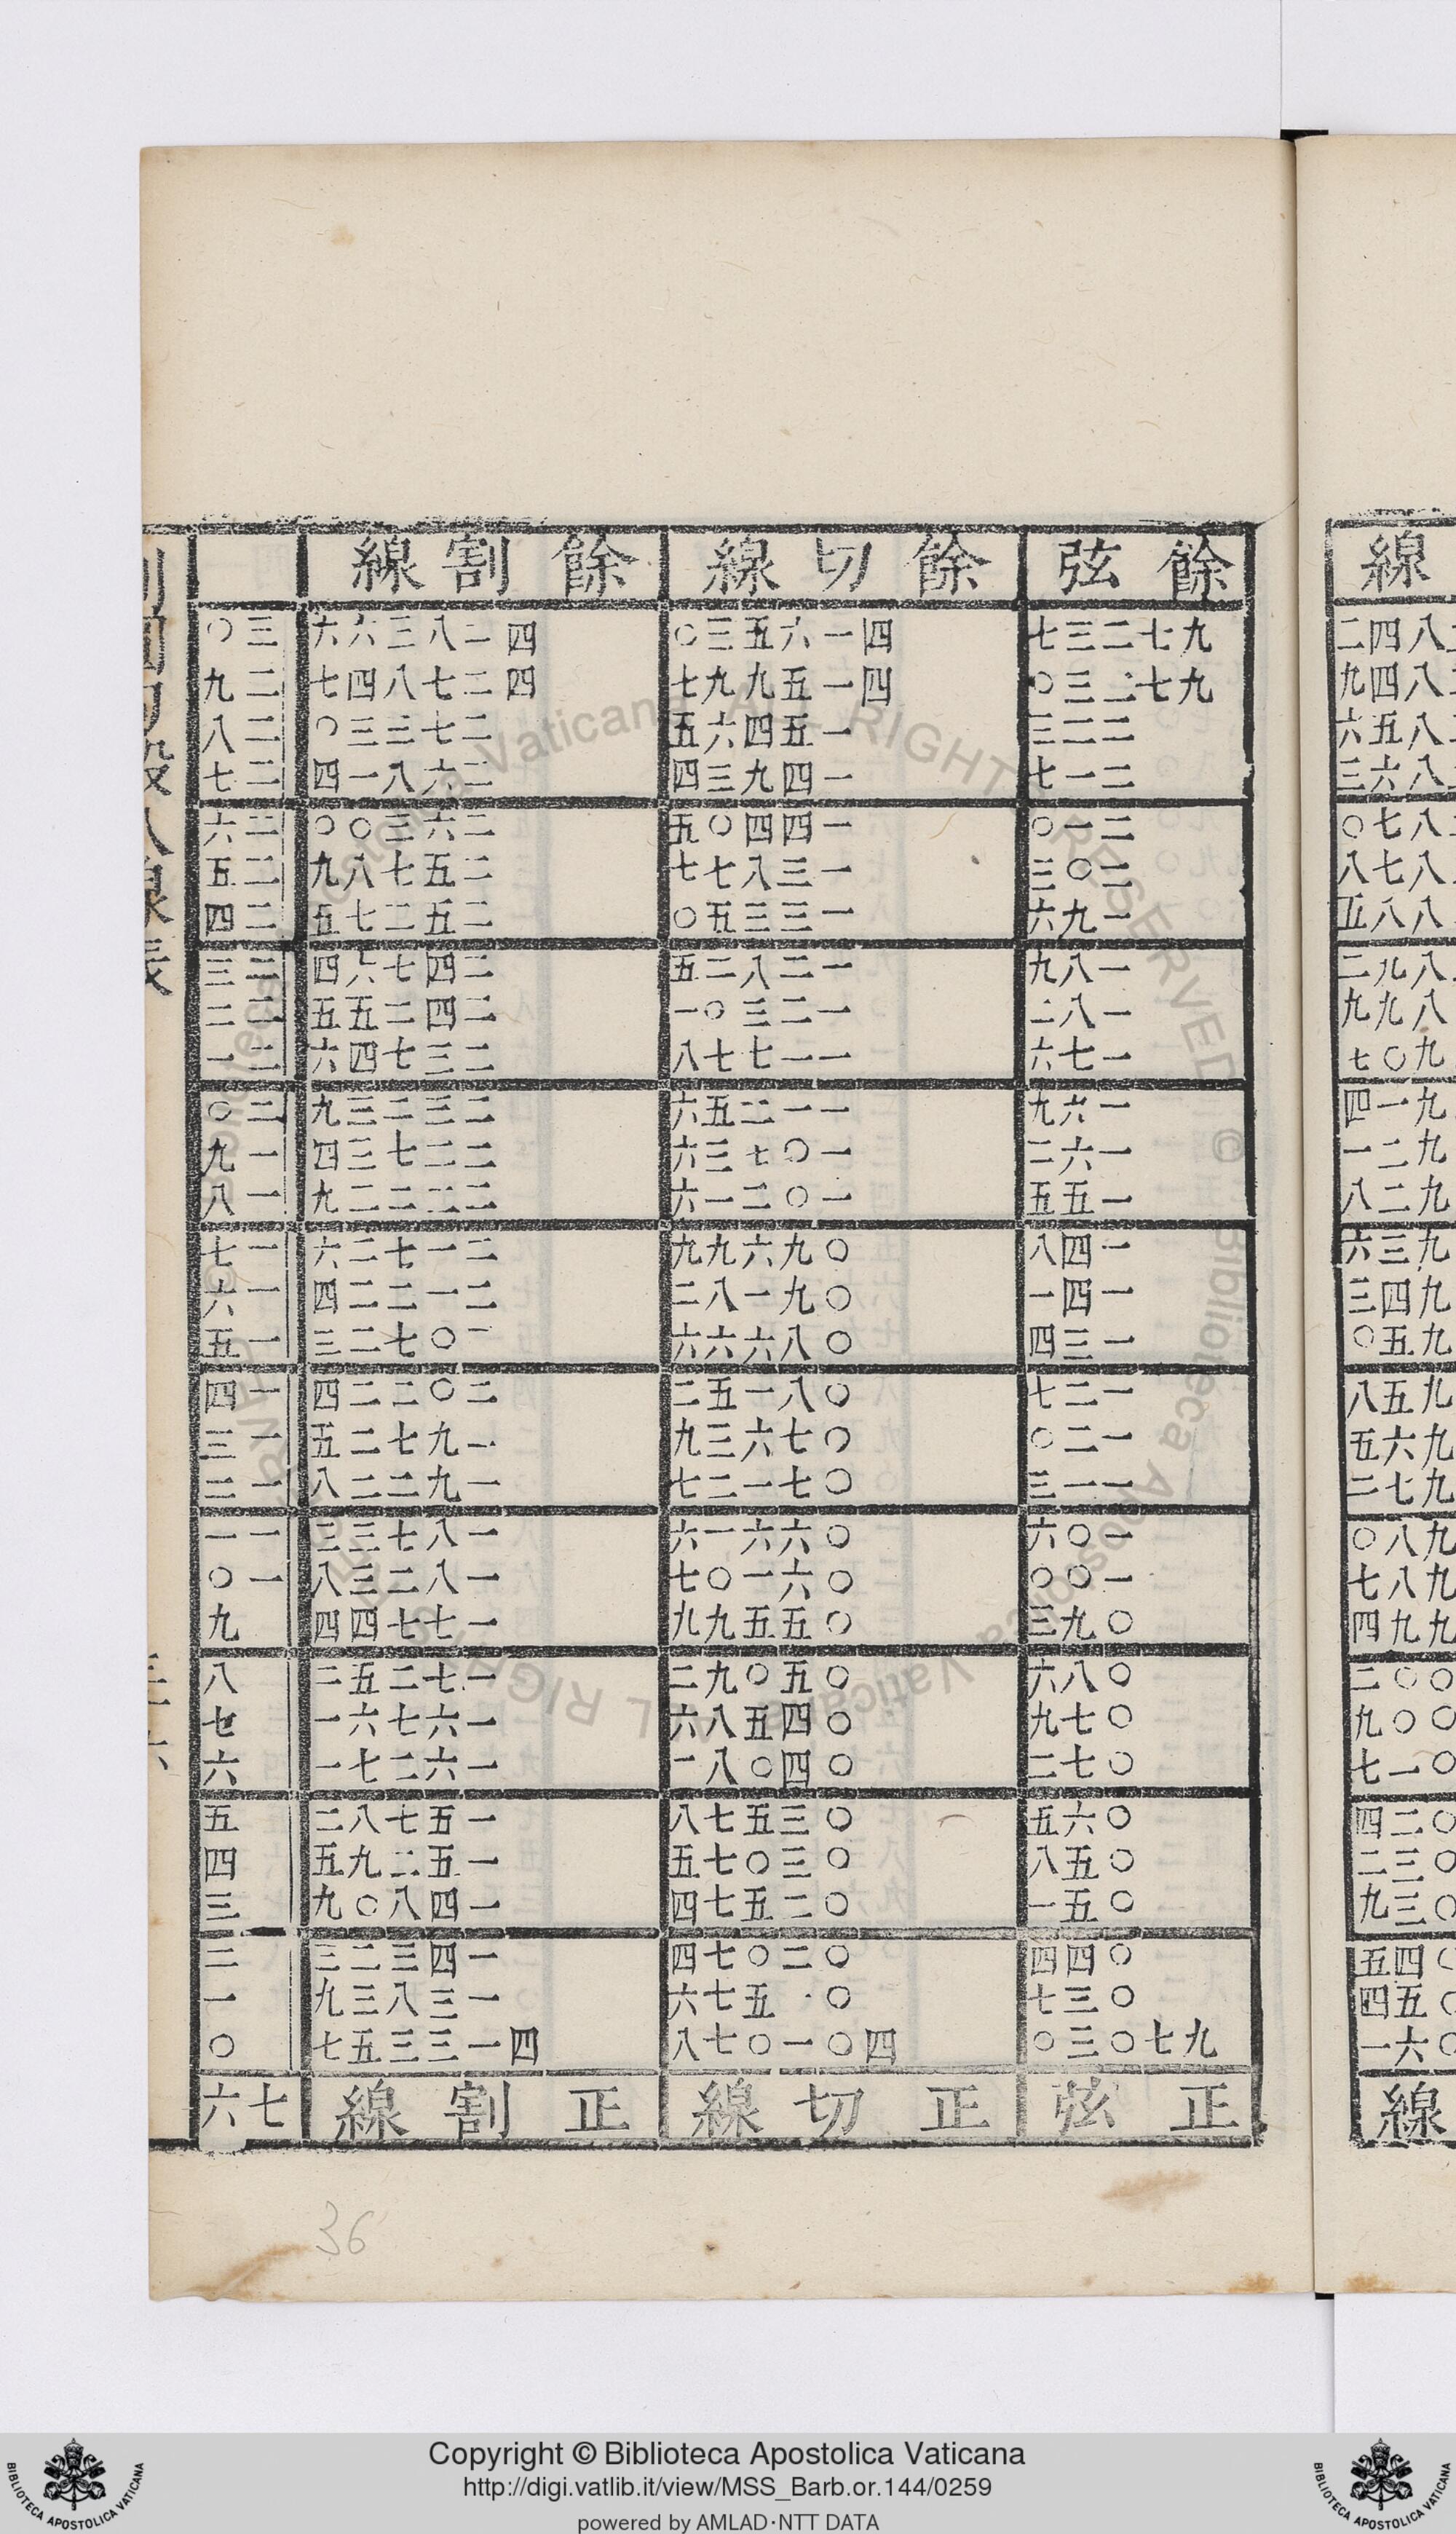 餘弦 餘切線 餘割線
九七二三七 四一六五三〇 四二八三六六 三〇
九七二三〇 四一五九九七 四二七八四七 二九
二二三 一五四六五 二七三三〇 二八
二一七 一四九三四 二六八一四 二七
二一〇 一四四〇五 二六三〇〇 二六
二〇三 一三八七七 二五七八九 二五
一九六 一三三五〇 二五二七五 二四
一八九 一二八二五 二四七六四 二三
一八二 一二三〇一 二四二五五 二二
一七六 一一七七八 二三七四六 二一
一六九 一一二五六 二三二三九 二〇
一六二 一〇七三六 二二七三四 一九
一五五 一〇二一六 二二二二九 一八
一四八 〇九六九九 二一七二六 一七
一四一 〇九一八二 二一二二四 一六
一三四 〇八六六六 二〇七二三 一五
一二七 〇八一五二 二〇二二四 一四
一二〇 〇七六三九 一九七二五 一三
一一三 〇七一二七 一九二二八 一二
一〇六 〇六六一六 一八七三三 一一
一〇〇 〇六一〇七 一八二三八 一〇
〇九三 〇五五九九 一七七四四 九
〇八六 〇五〇九二 一七二五二 八
〇七九 〇四五八六 一六七六一 七
〇七二 〇四〇八一 一六二七一 六
〇六五 〇三五七八 一五七八二 五
〇五八 〇三〇七五 一五二九五 四
〇五一 〇二五七四 一四八〇九 三
〇四四 〇二〇七四 一四三二三 二
〇三七 〇一五七六 一三八三九 一
九七〇三〇 四〇一〇七八 四一三三五七 〇
正弦 正切線 正割線 七六
36
Copyright © Biblioteca Apostolica Vaticana
http://digi.vatlib.it/view/MSS_Barb.or.144/0259
powered by AMLAD·NTT DATA